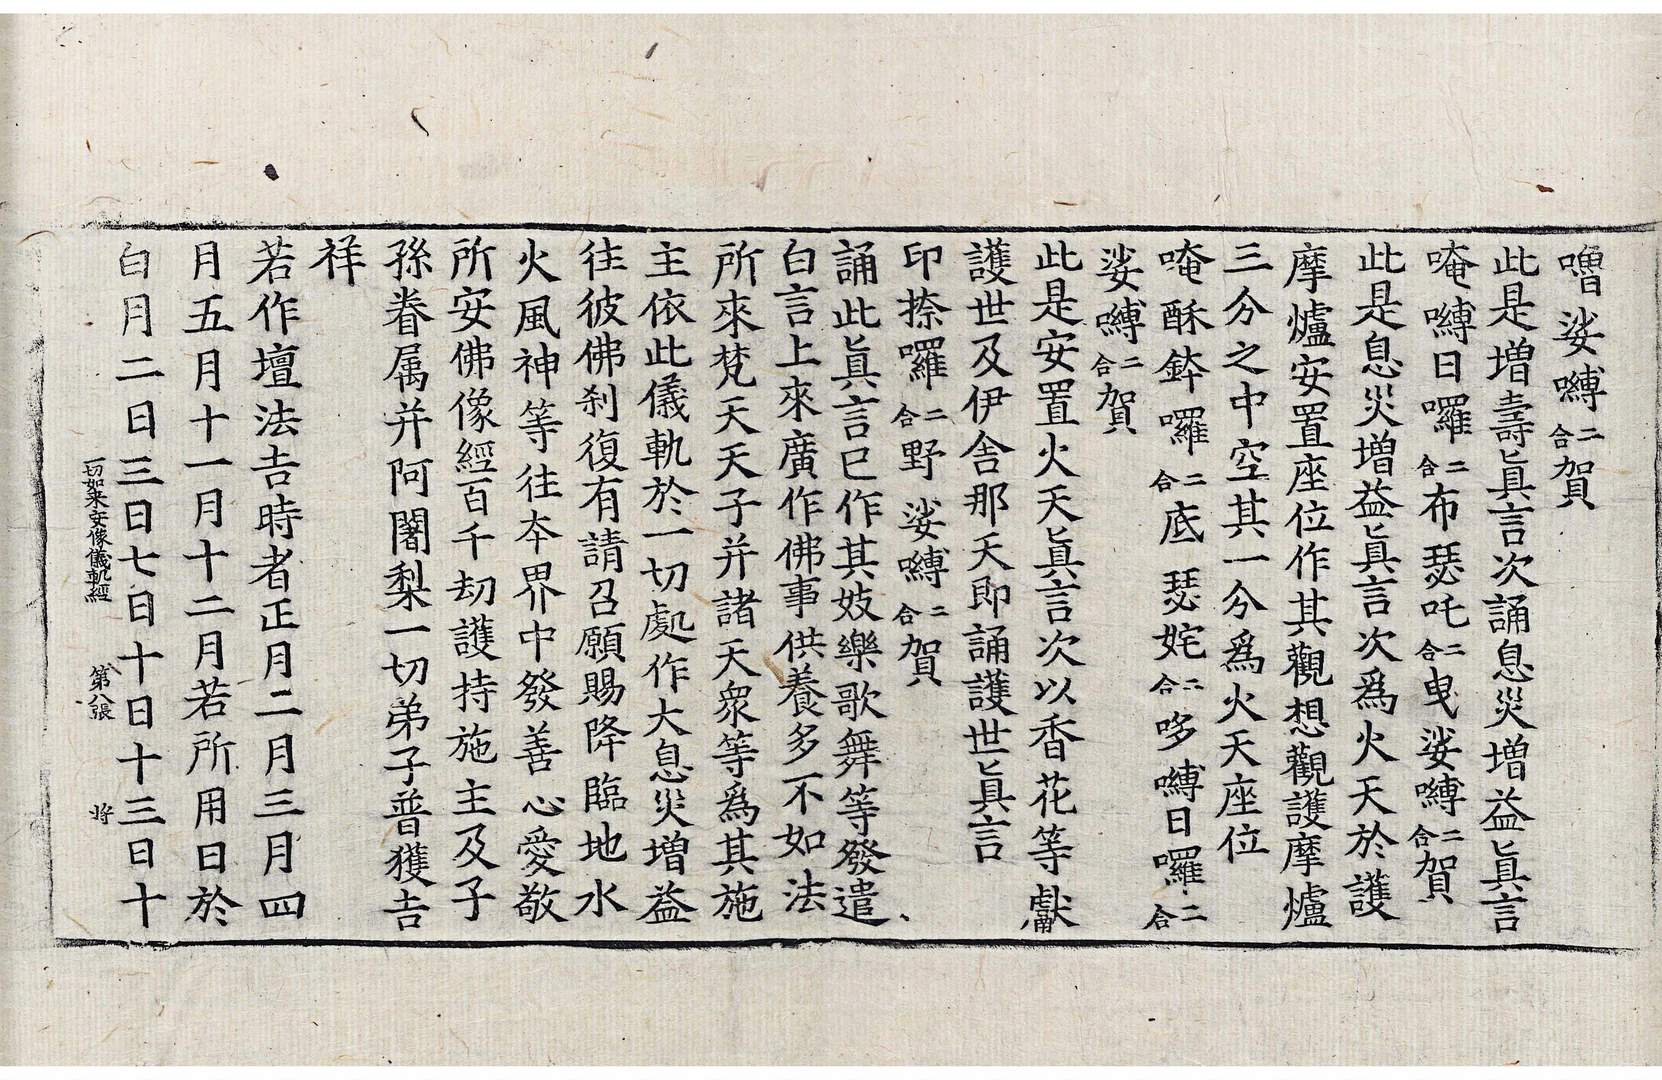 嚕娑嚩二合賀
此是增壽眞言次誦息災增益眞言
唵嚩日囉二合布瑟吒二合曳娑嚩二合賀
此是息災增益眞言次爲火天於護
摩爐安置座位作其觀想觀護摩爐
三分之中空其一分爲火天座位
唵酥鉢囉二合底瑟姹二合哆嚩日囉二合
娑嚩二合賀
此是安置火天眞言次以香花等獻
護世及伊舍那天即誦護世眞言
印捺囉二合野娑嚩二合賀
誦此眞言已作其妓樂歌舞等發遣
白言上來廣作佛事供養多不如法
所來梵天天子并諸天衆等爲其施
主依此儀軌於一切處作大息災增益
往彼佛刹復有請召願賜降臨地水
火風神等往本界中發善心愛敬
所安佛像經百千劫護持施主及子
孫眷属并阿闍梨一切弟子普獲吉
祥
若作壇法吉時者正月二月三月四
月五月十一月十二月若所用日於
白月二日三日七日十日十三日十
一切如来安像儀軌經 第八張 將